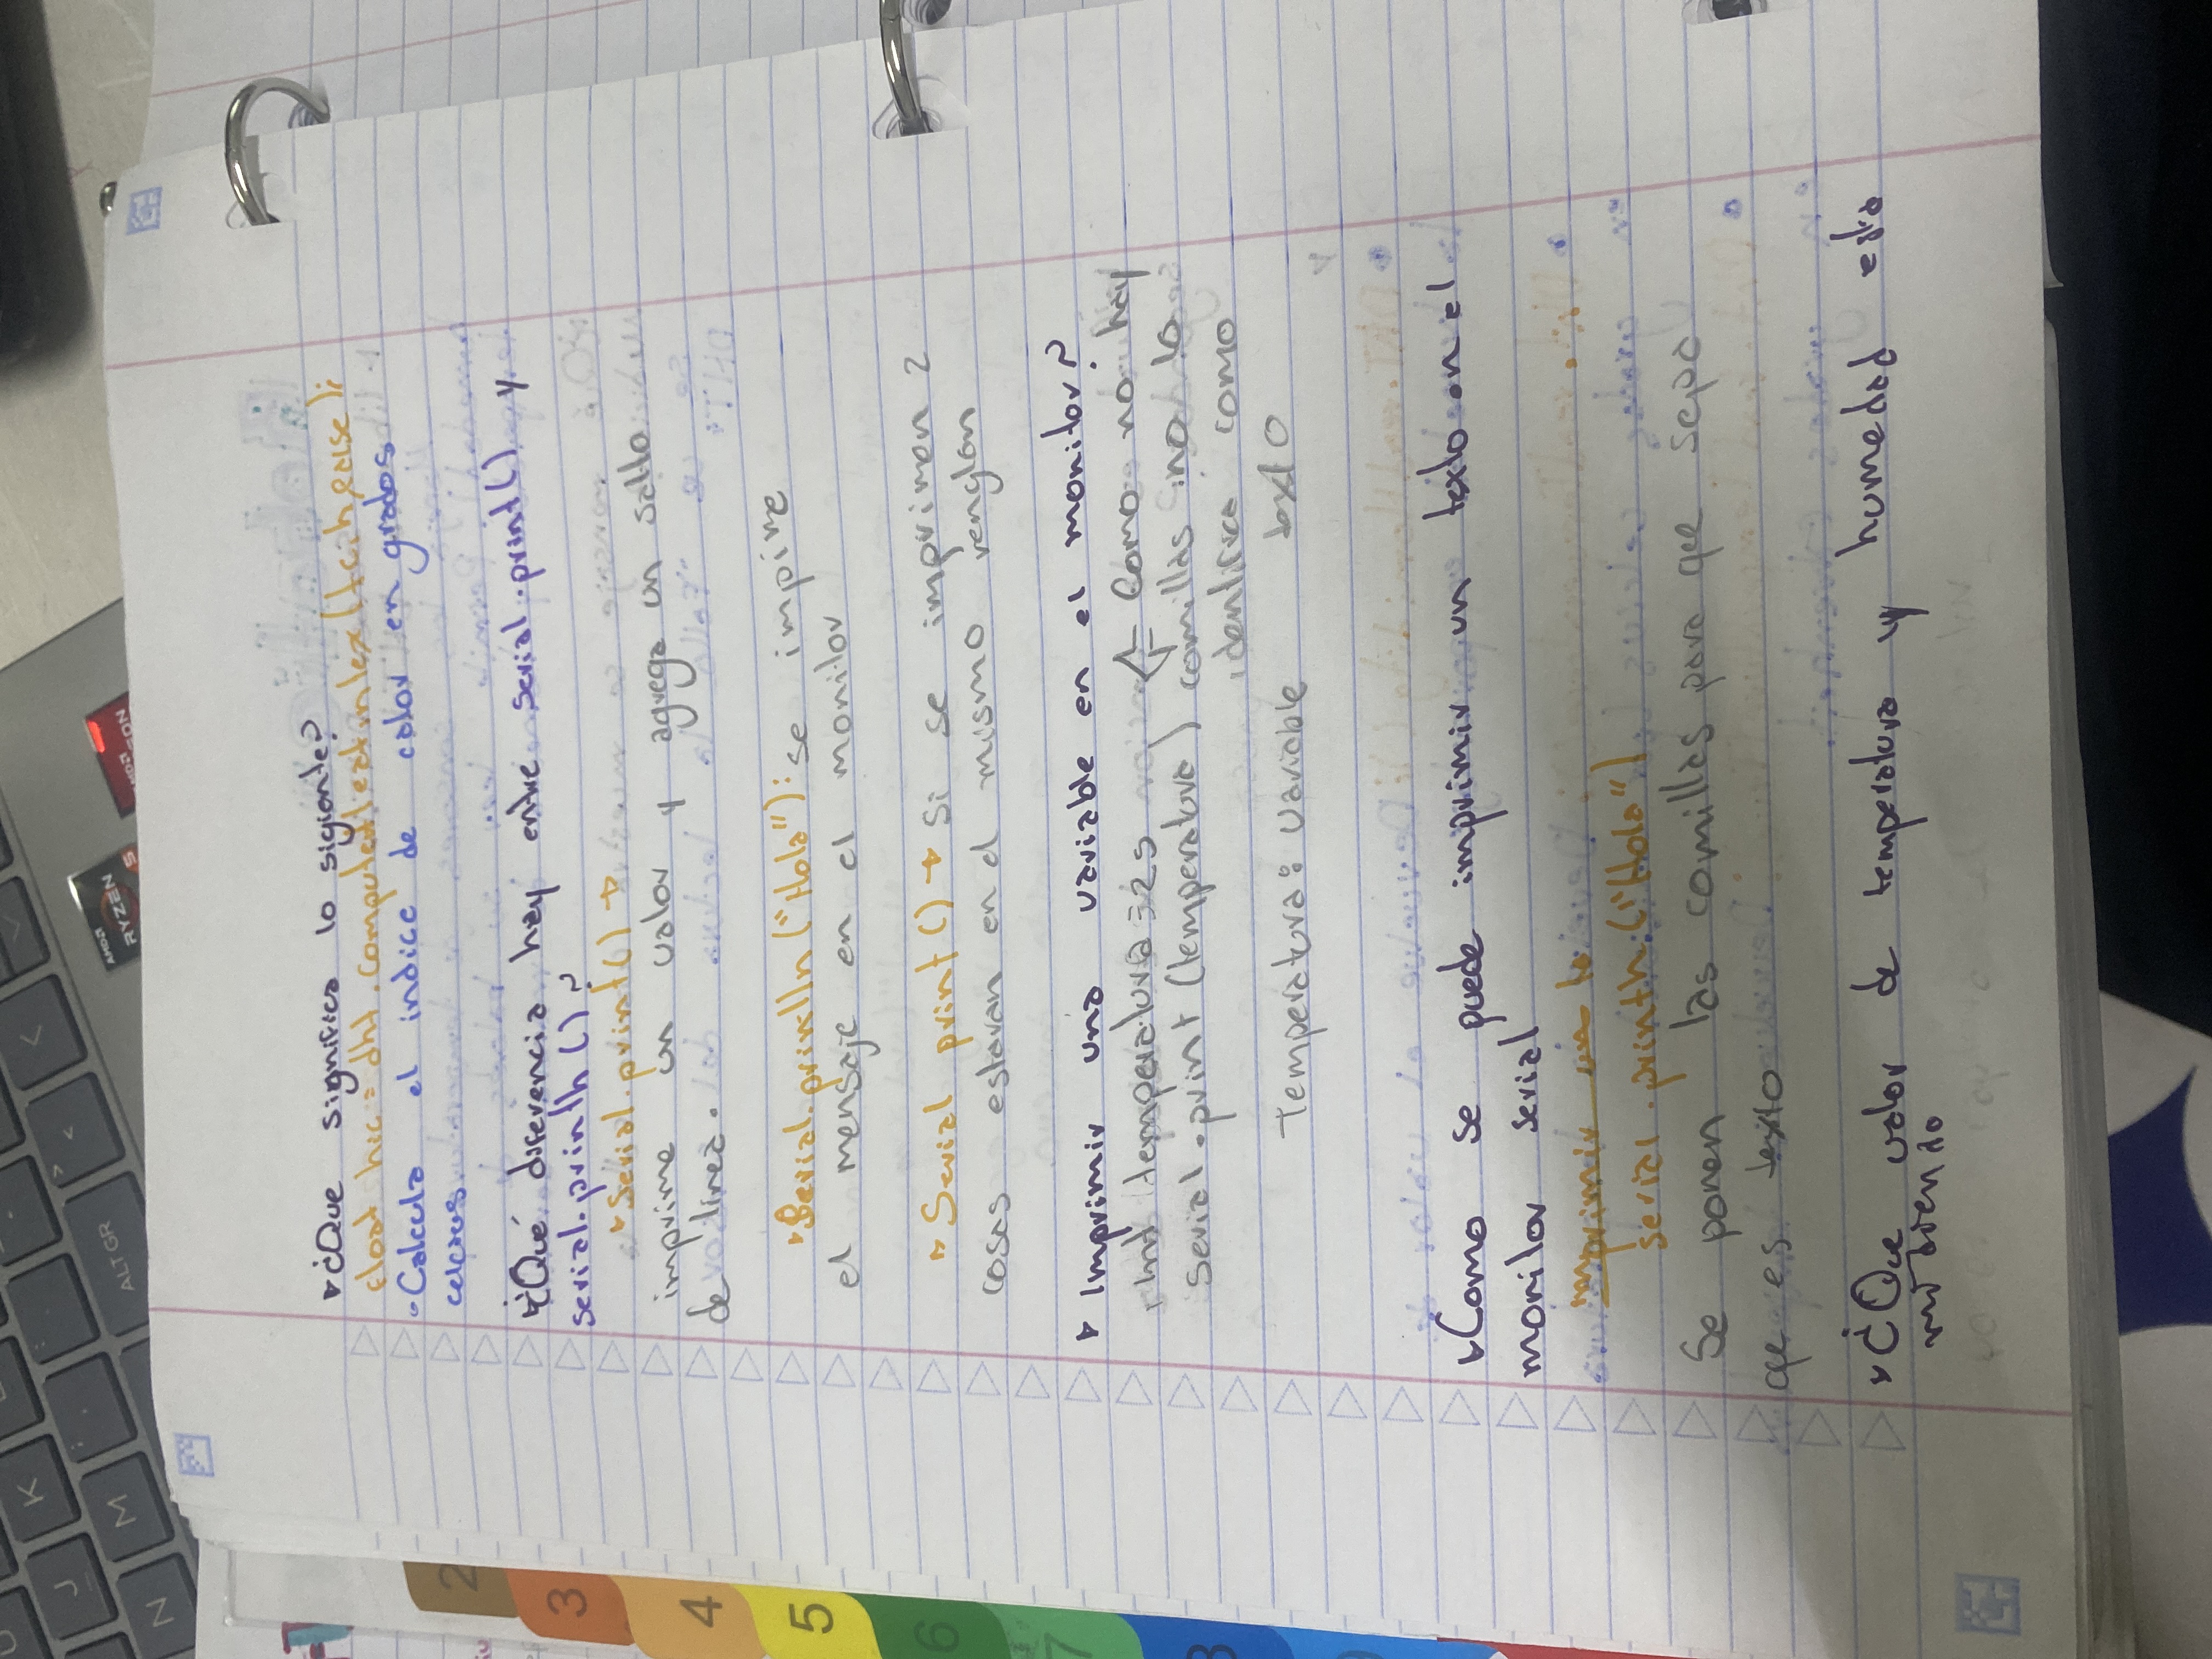 ¿Que significa lo sigiente?
float hic = dht.computeHeatIndex(t,h,false);
Calcula el indice de calor en grados
celcius.
¿Qué diferencia hay entre serial.print() y
serial.println()?
Serial.print()
imprime un valor y agrega un salto
de linea.
Serial.println("Hola"): se impime
el mensaje en el monitor
Serial print() Si se imprimen 2
cosas estaran en el mismo renglon
Imprimir una variable en el monitor?
temperatura = 25 ← Como no hay
serial.print (temperatura) comillas no lo
identifica como
Temperatura: variable texto
Como se puede imprimir un texto en el
monitor serial
imprimir un te
serial.println("Hola")
Se ponen las comillas para que sepa
que es texto
¿Que valor de temperatura y humedad esta
midiendo
2
3
4
5
6
7
8
9
AMD
RYZEN
5
RADEON
ALT GR
K
M
J
N
<
>